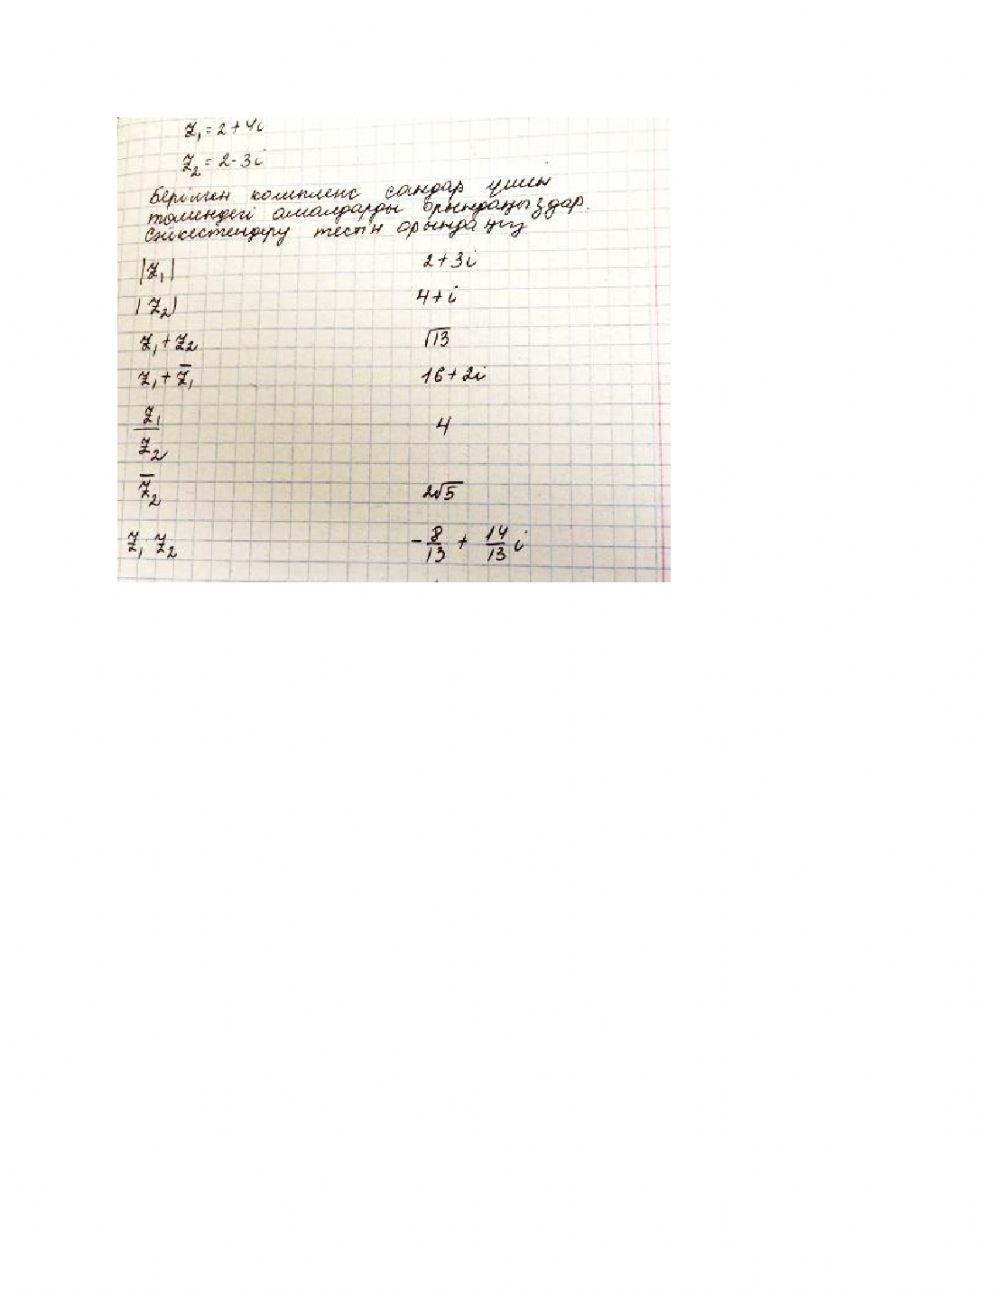 z₁ = 2 + 4i
z₂ = 2 - 3i
Берілген комплекс сандар үшін
төмендегі амалдарды орындаңыздар.
Сәйкестендіру тестін орындаңыз
|z₁| 2 + 3i
|z₂| 4 + i
z₁ + z₂ √13
z₁ + z̅₁ 16 + 2i
z₁/z₂ 4
z̅₂ 2√5
z₁ z₂ -8/13 + 14/13 i